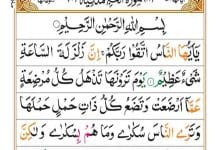 بِسْمِ اللّٰهِ الرَّحْمٰنِ الرَّحِيْمِ
يٰۤاَيُّهَا النَّاسُ اتَّقُوْا رَبَّكُمْ ۚ اِنَّ زَلْزَلَةَ السَّاعَةِ
شَیْءٌ عَظِيْمٌ يَوْمَ تَرَوْنَهَا تَذْهَلُ كُلُّ مُرْضِعَةٍ
عَمَّاۤ اَرْضَعَتْ وَتَضَعُ كُلُّ ذَاتِ حَمْلٍ حَمْلَهَا
وَتَرَى النَّاسَ سُكٰرٰى وَمَا هُمْ بِسُكٰرٰى وَلٰكِنَّ